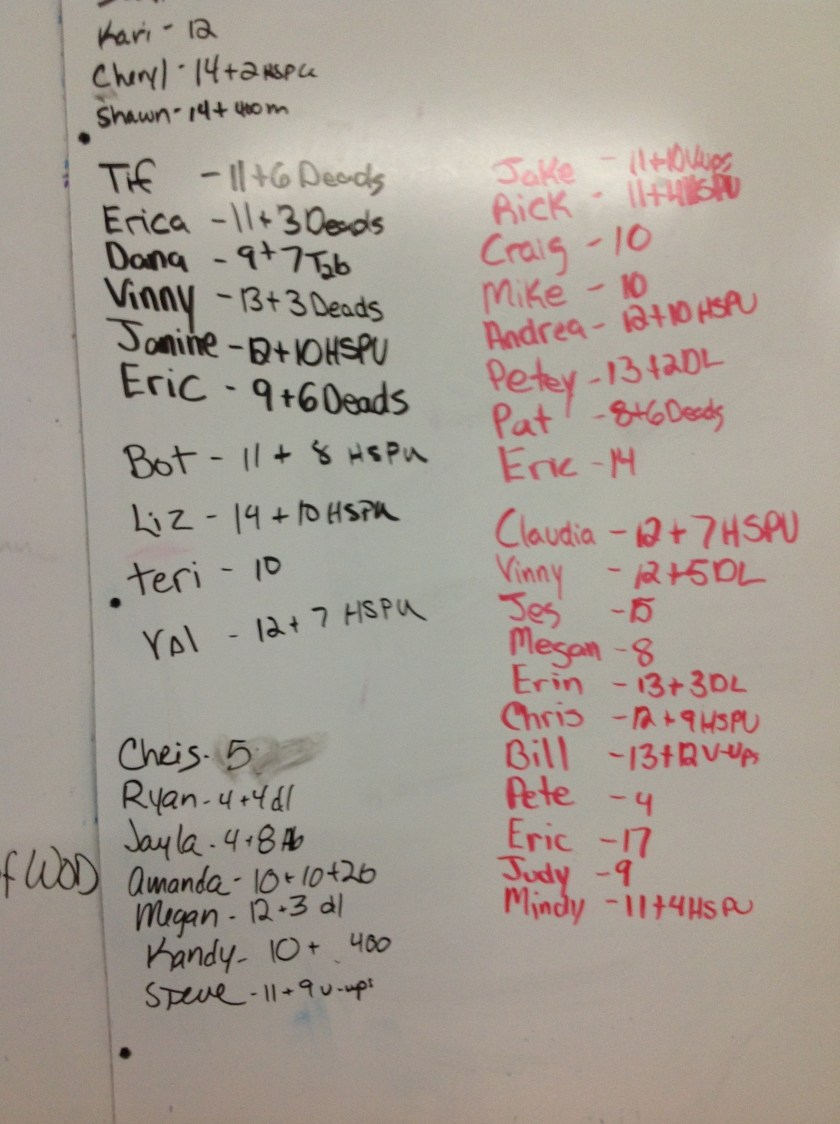 Kari - 12
Cheryl - 14+2 HSPU
Shawn - 14 + 400m
Tif - 11+6 Deads
Erica - 11+3 Deads
Dana - 9+7 T2b
Vinny - 13+3 Deads
Janine - 12+10HSPU
Eric - 9+6 Deads
Bot - 11 + 8 HSPU
Liz - 14 + 10 HSPU
teri - 10
Val - 12+7 HSPU
Cheis - 5
Ryan - 4+4 dl
Jayla - 4+8
amanda - 10+10+2b
Megan - 12+3 dl
Kandy - 10 + 400
Steve - 11+9 v-ups
f WOD
Jake - 11+10 V-ups
Rick - 11+4HSPU
Craig - 10
Mike - 10
Andrea - 12+10 HSPU
Petey - 13+2DL
Pat - 8+6 Deads
Eric - 14
Claudia - 12 + 7 HSPU
Vinny - 12+5 DL
Jes - 15
Megan - 8
Erin - 13+3DL
Chris - 12+9 HSPU
Bill - 13+12 V-ups
Pete - 4
Eric - 17
Judy - 9
Mindy - 11+4 HSPU